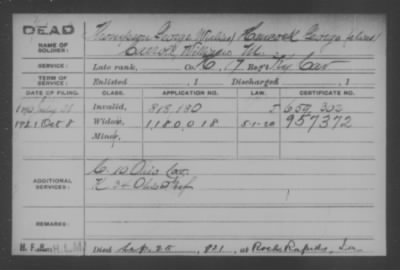 DEAD
NAME OF SOLDIER:
Thompson, George (Alias) Hancock, George (alias)
Carroll, William M.
SERVICE:
Late rank, Co. C, 17 Reg't Ky Cav
TERM OF SERVICE
Enlisted , 1 Discharged , 1
DATE OF FILING. CLASS. APPLICATION NO. LAW. CERTIFICATE NO.
Invalid, 815,130 659,302
1921 Oct 8 Widow, 1,180,018 5-1-20 957372
Minor,
ADDITIONAL SERVICES:
C. 10 Ohio Cav.
K 34 Ohio Inf
REMARKS:
Died Sep. 25, 1921, at Rock Rapids, Ia